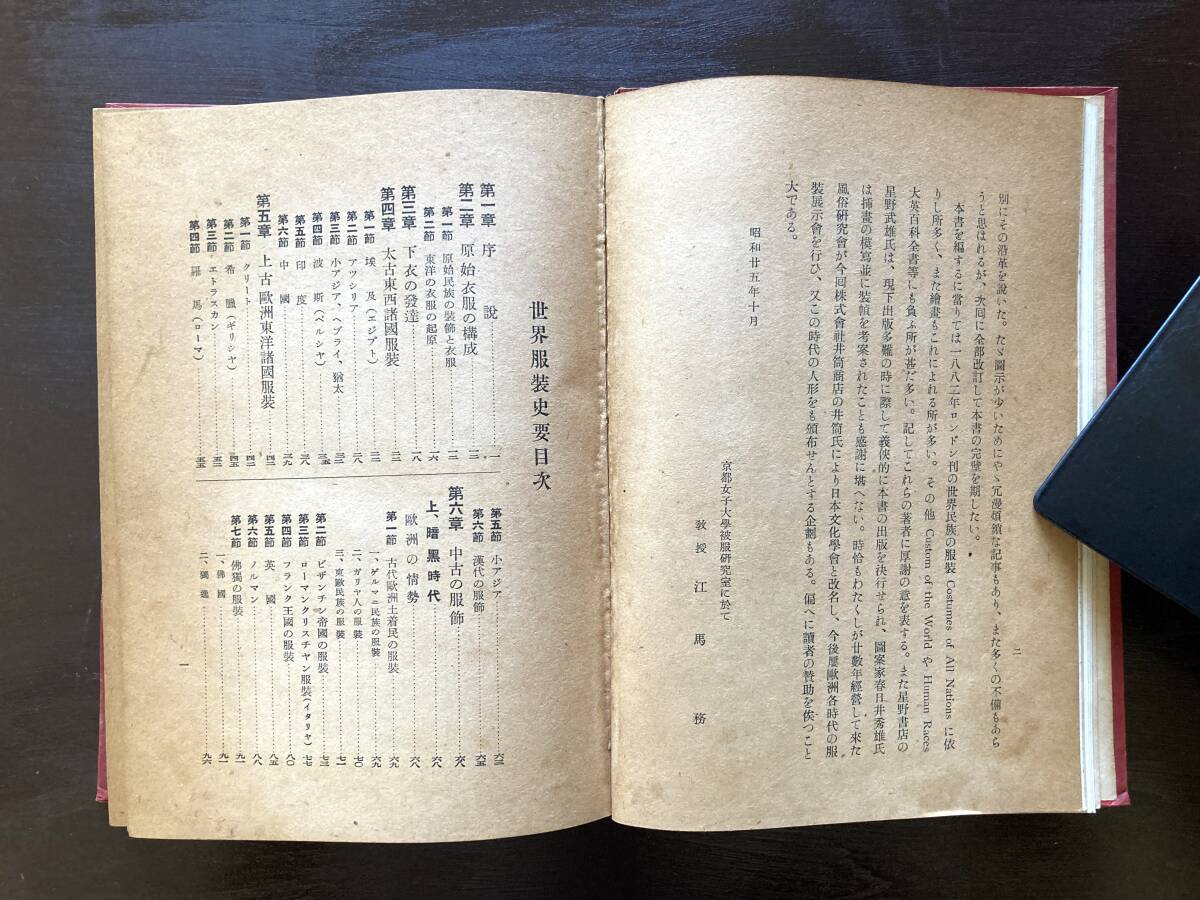 二
別にその沿革を說いた。たゞ圖示が少いためにやゝ冗漫煩鎖な記事もあり、また多くの不備もあら
うと思はれるが、次回に全部改訂して本書の完璧を期したい。
本書を編するに當りては一八八二年ロンドン刊の世界民族の服裝 Costumes of All Nations に依
りし所多く、また繪畫もこれによれる所が多い。その他 Custom of the World や Human Races
大英百科全書等にも負ふ所が甚だ多い。記してこれらの著者に厚謝の意を表する。また星野書店の
星野武雄氏は、現下出版多難の時に際して義俠的に本書の出版を決行せられ、圖案家春日井秀雄氏
は挿畫の模寫並に裝幀を考案されたことも感謝に堪へない。時恰もわたくしが廿數年經營して來た
風俗硏究會が今回株式會社井筒商店の井筒氏により日本文化學會と改名し、今後屢歐洲各時代の服
裝展示會を行ひ、又この時代の人形をも頒布せんとする企劃もある。偏へに讀者の贊助を俟つこと
大である。
昭和廿五年十月
京都女子大學被服硏究室に於て
敎授 江馬務
世界服裝史要目次
第一章 序說……一
第二章 原始衣服の構成……二
第一節 原始民族の裝飾と衣服……二
第二節 東洋の衣服の起原……一六
第三章 下衣の發達……一八
第四章 太古東西諸國服裝……二二
第一節 埃及(エジプト)……二二
第二節 アツシリア……二八
第三節 小アジア、ヘブライ、猶太……三二
第四節 波斯(ペルシヤ)……三五
第五節 印度……三八
第六節 中國……三九
第五章 上古歐洲東洋諸國服裝……四二
第一節 クリート……四二
第二節 希臘(ギリシヤ)……四五
第三節 エトラスカン……五二
第四節 羅馬(ローマ)……五五
第五節 小アジア……六三
第六節 漢代の服飾……六五
第六章 中古の服飾……六八
上、暗黑時代……六八
歐洲の情勢……六八
第一節 古代歐洲土着民の服裝……六九
一、ゲルマニ民族の服裝……六九
二、ガリヤ人の服裝……七〇
三、東歐民族の服裝……七一
第二節 ビザンチン帝國の服裝……七三
第三節 ローマンクリスチヤン服裝(イタリヤ)……七七
第四節 フランク王國の服裝……八〇
第五節 英國……八五
第六節 ノルマン……八八
第七節 佛獨の服裝……九一
一、佛國……九一
二、獨逸……九六
一